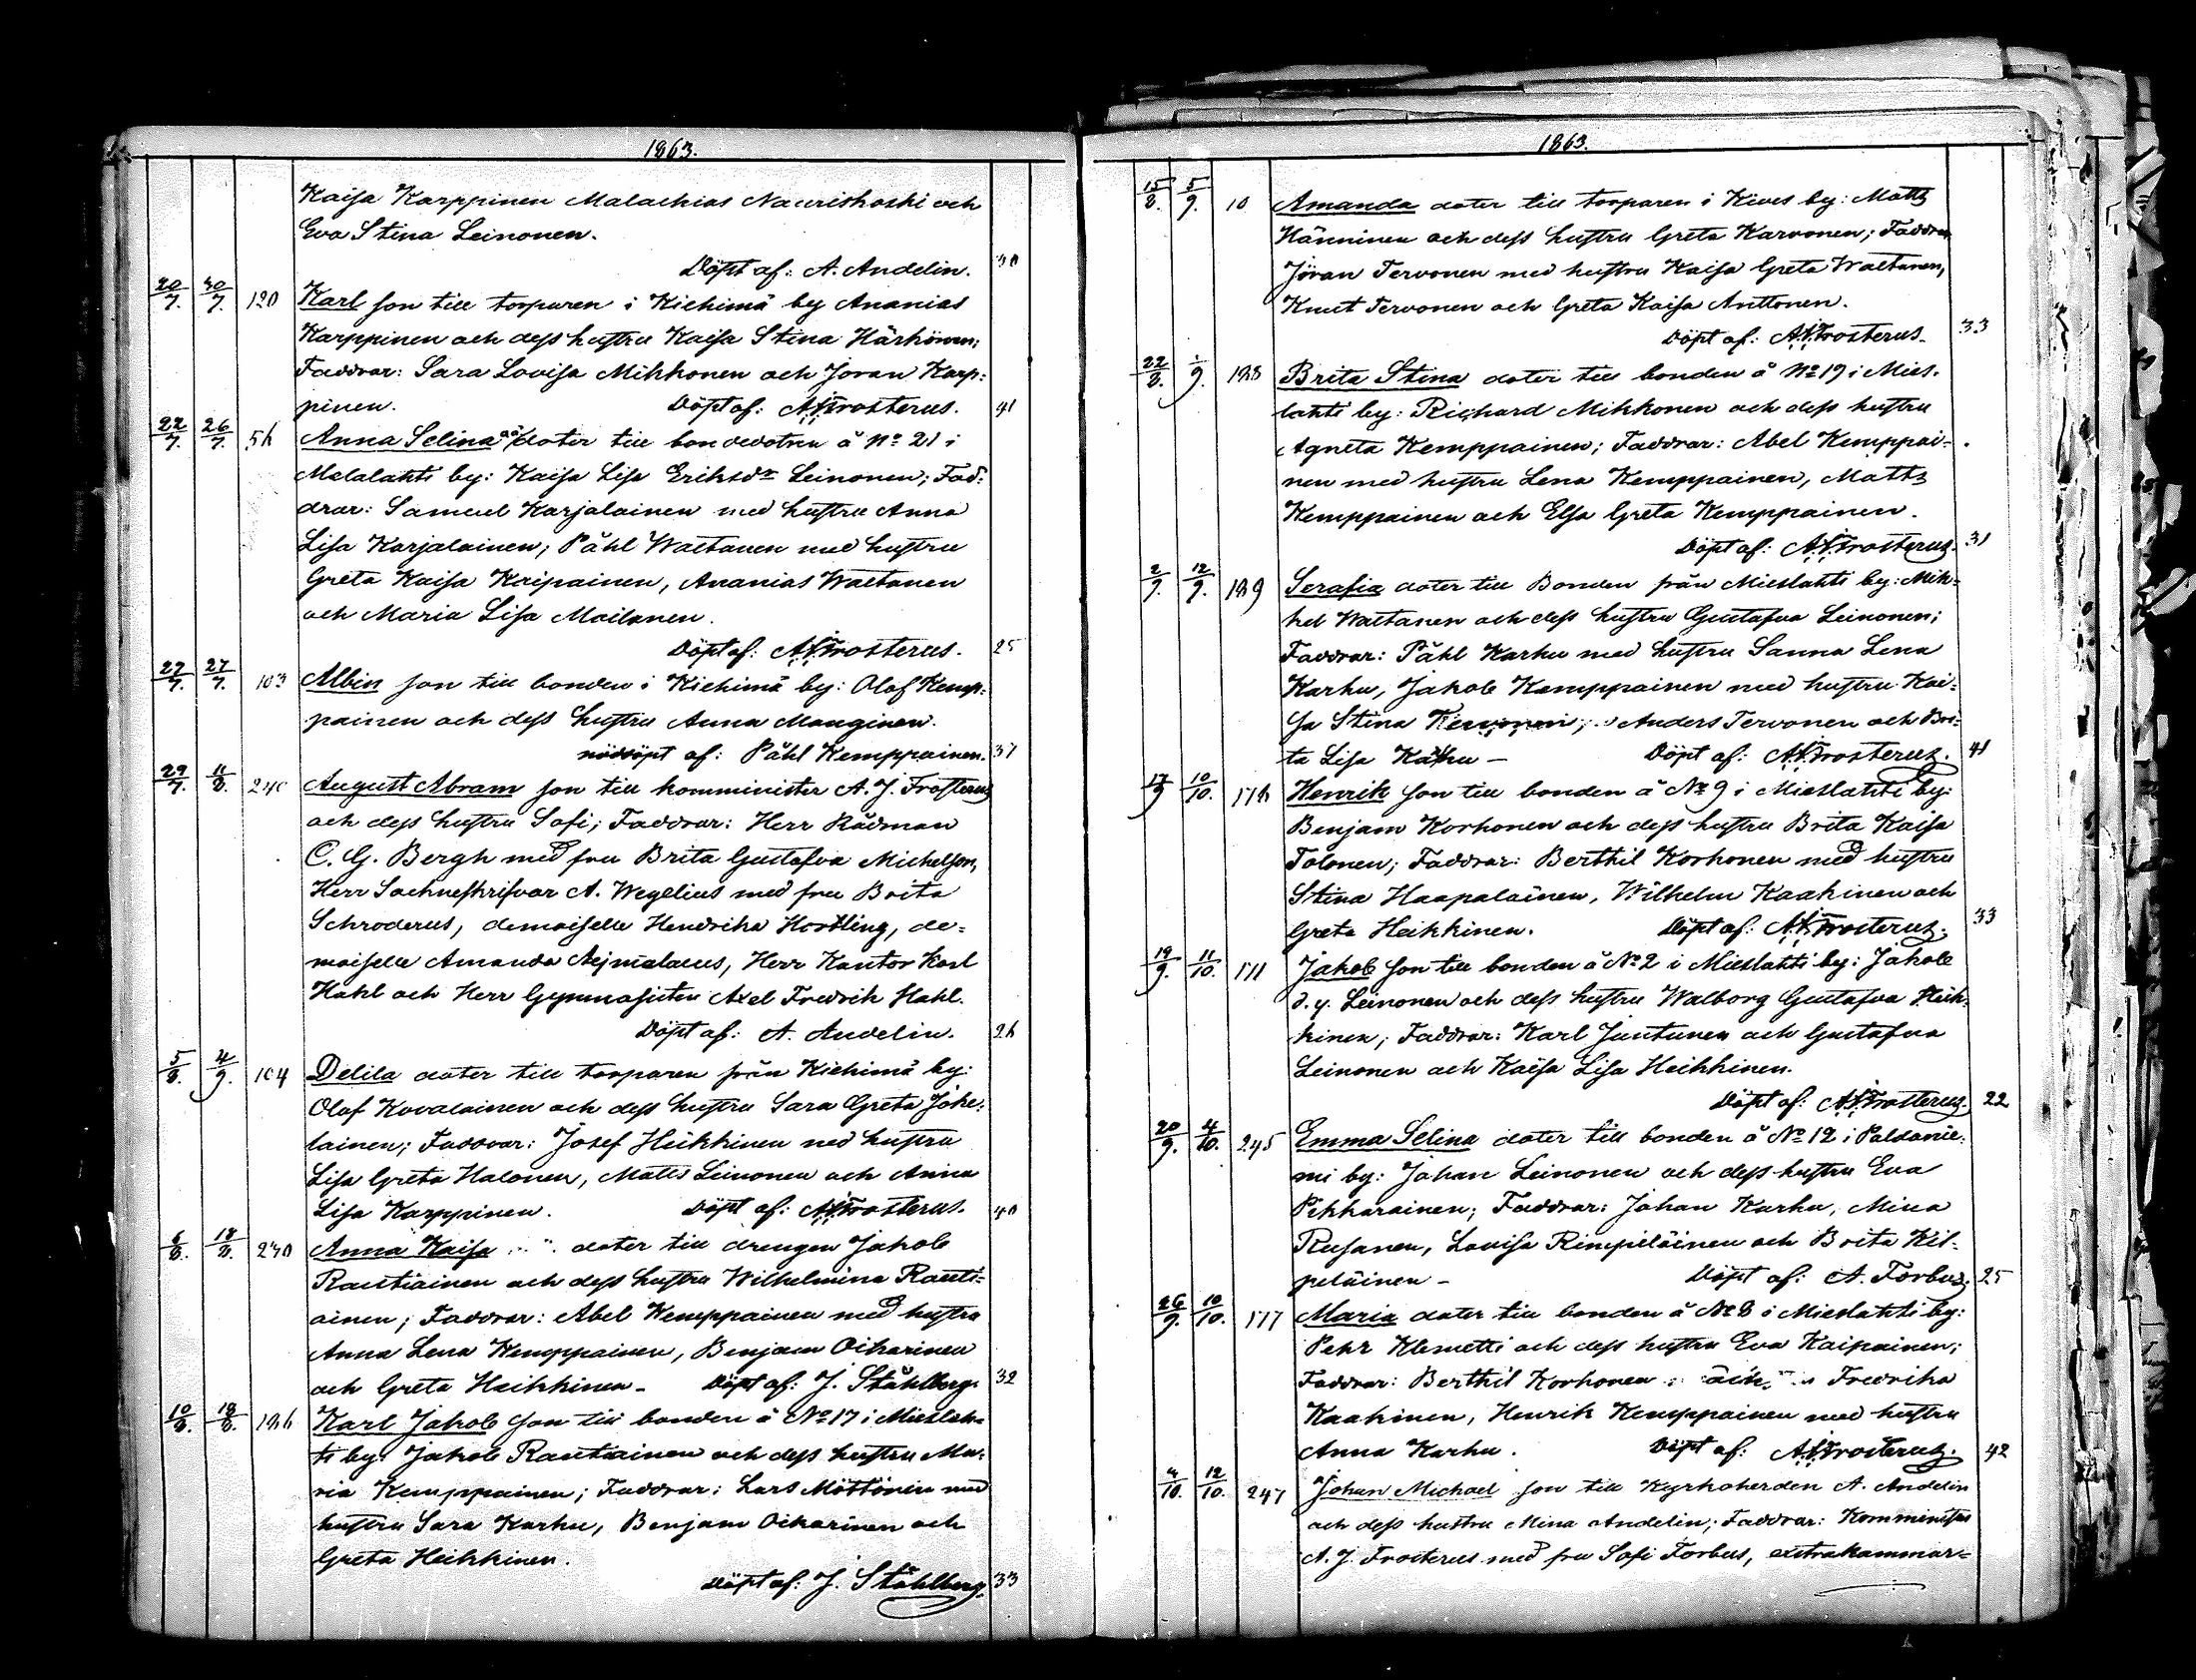 1863.
Kaisa Karppinen Malachias Naurishoski och
Eva Stina Leinonen.
Döpt af: A. Andelin. 30
20/7. 30/7. 120 Karl son till torparen i Kiehimä by Ananias
Karppinen och dess hustru Kaisa Stina Härkönen;
Faddrar: Sara Lovisa Mikkonen och Jöran Karp-
pinen. Döpt af: A.J. Frosterus. 41
22/7. 26/7. 56 Anna Selina oä dotter till bondedotren å No 21 i
Melalahti by: Kaisa Lisa Eriksdr Leinonen; Fad-
drar: Samuel Karjalainen med hustru Anna
Lisa Karjalainen; Påhl Waetanen med hustru
Greta Kaisa Kaipainen, Ananias Waetanen
och Maria Lisa Moilanen.
Döpt af: A.J. Frosterus. 25
27/7. 27/7. 103 Albin son till bonden i Kiehimä by: Olof Kemp-
painen och dess hustru Anna Manginen.
nöddöpt af: Påhl Kemppainen. 37
29/7. 11/8. 240 August Abram son till komminister A. J. Frosterus
och dess hustru Sofi; Faddrar: Herr Rådman
C. G. Bergh med fru Brita Gustafva Michelson,
Herr Sockneskrifvar A. Wegelius med fru Brita
Schroderus, demoiselle Hendrika Hortling, de-
moiselle Amanda Aejmelaeus, Herr Kantor Karl
Hahl och Herr Gymnasisten Axel Fredrik Hahl.
Döpt af: A. Andelin. 26
5/8. 4/9. 104 Delila dotter till torparen från Kiehimä by:
Olof Kovalainen och dess hustru Sara Greta Joke-
lainen; Faddrar: Josef Heikkinen med hustru
Lisa Greta Halonen, Matts Leinonen och Anna
Lisa Karppinen. Döpt af: A.J. Frosterus. 40
6/8. 18/8. 230 Anna Kaisa dotter till drengen Jakob
Rautiainen och dess hustru Wilhelmina Rauti-
ainen; Faddrar: Abel Kemppainen med hustru
Anna Lena Kemppainen, Benjam Oikarinen
och Greta Heikkinen. Döpt af: J. Ståhlberg. 32
10/8. 18/8. 186 Karl Jakob son till bonden å No 17 i Mieslah-
ti by: Jakob Rautiainen och dess hustru Ma-
ria Kemppainen; Faddrar: Lars Möttönen med
hustru Sara Karhu, Benjam Oikarinen och
Greta Heikkinen.
Döpt af: J. Ståhlberg. 33
1863.
15/8. 5/9. 10 Amanda doter till torparen i Kives by: Matts
Hänninen och dess hustru Greta Karvonen; Faddrar
Jöran Tervonen med hustru Kaisa Greta Waetanen,
Knut Tervonen och Greta Kaisa Anttonen.
Döpt af: A.J. Frosterus. 33
22/8. 1/9. 188 Brita Stina doter till bonden å No 19 i Mies-
lahti by: Richard Mikkonen och dess hustru
Agneta Kemppainen; Faddrar: Abel Kemppai-
nen med hustru Lena Kemppainen, Matts
Kemppainen och Elsa Greta Kemppainen.
Döpt af: A.J. Frosterus. 31
2/9. 12/9. 189 Serafia doter till Bonden från Mieslahti by: Mik-
hel Waetanen och dess hustru Gustafva Leinonen;
Faddrar: Påhl Karhu med hustru Sanna Lena
Karhu, Jakob Kemppainen med hustru Kai-
sa Stina Anders Tervonen och Bri-
ta Lisa Karhu – Döpt af: A.J. Frosterus. 41
17/9 10/10. 176 Henrik son till bonden å No 9 i Mieslahti by:
Benjam Korhonen och dess hustru Brita Kaisa
Tolonen; Faddrar: Berthil Korhonen med hustru
Stina Haapalainen, Wilhelm Kaakinen och
Greta Heikkinen. Döpt af: A.J. Frosterus. 33
19/9. 11/10. 171 Jakob son till bonden å No 2 i Mieslahti by: Jakob
d. y. Leinonen och dess hustru Walborg Gustafva Heik-
kinen; Faddrar: Karl Juntunen och Gustafva
Leinonen och Kaisa Lisa Heikkinen.
Döpt af: A.J. Frosterus. 22
20/9. 4/10. 245 Emma Selina doter till bonden å No 12 i Paldanie-
mi by: Johan Leinonen och dess hustru Eva
Pikkarainen; Faddrar: Johan Karhu, Mina
Rusanen, Lovisa Rimpiläinen och Brita Kil-
peläinen – Döpt af: A. Forbus. 25
26/9. 10/10. 177 Maria doter till bonden å No 8 i Mieslahti by:
Pehr Klemetti och dess hustru Eva Kaipainen;
Faddrar: Berthil Korhonen Fredrika
Kaakinen, Henrik Kemppainen med hustru
Anna Karhu. Döpt af: A.J. Frosterus. 42
4/10. 12/10. 247 Johan Michael son till Kyrkoherden A. Andelin
och dess hustru Mina Andelin; Faddrar: Komminister
A. J. Frosterus med fru Sofi Forbus, extrakammar-